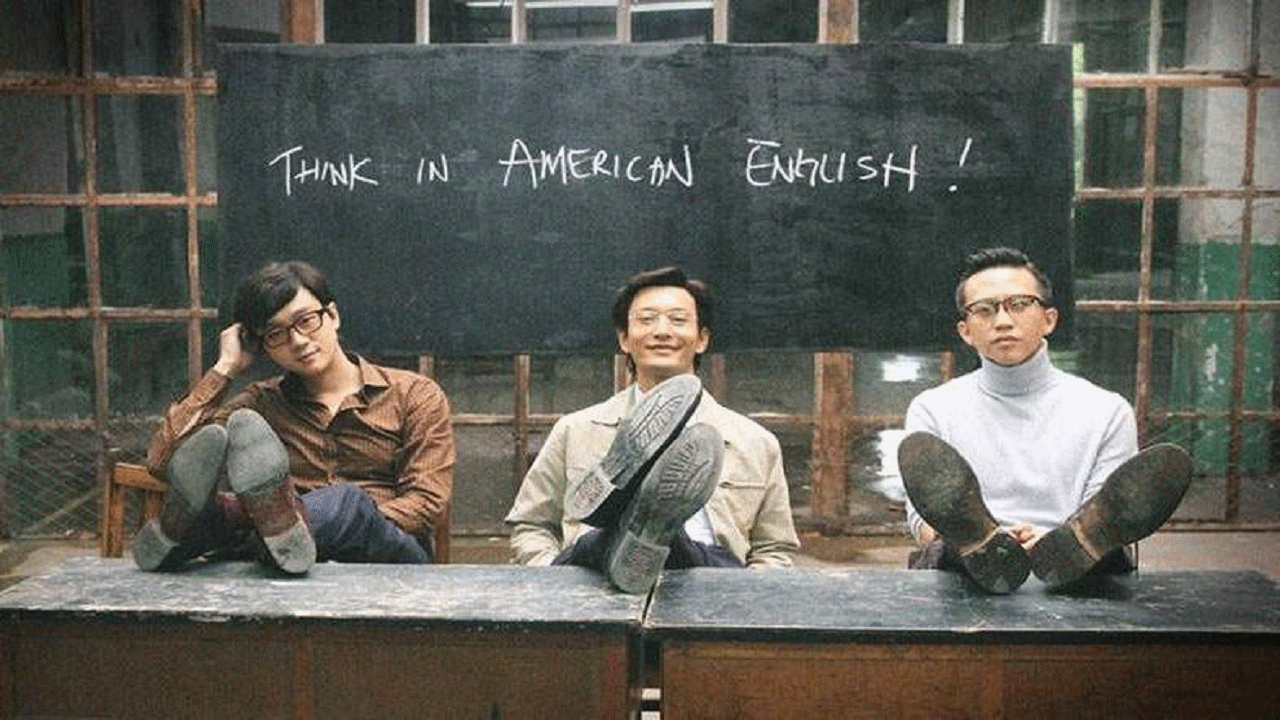 THINK IN AMERICAN ENGLISH!